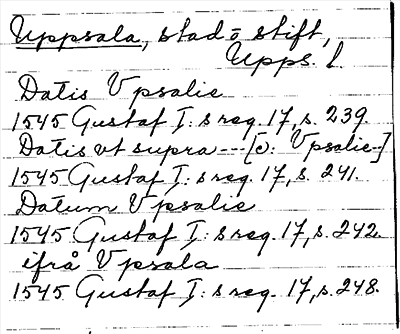 Uppsala, stad o stift,
Upps. l.
Datis Vpsalie
1545 Gustaf I:s reg. 17, s. 239.
Datis vt supra --- [ɔ: Vpsalie-]
1545 Gustaf I:s reg. 17, s. 241.
Datum Vpsalie
1545 Gustaf I:s reg. 17, s. 242.
ifrå Vpsala
1545 Gustaf I:s reg. 17, s. 248.